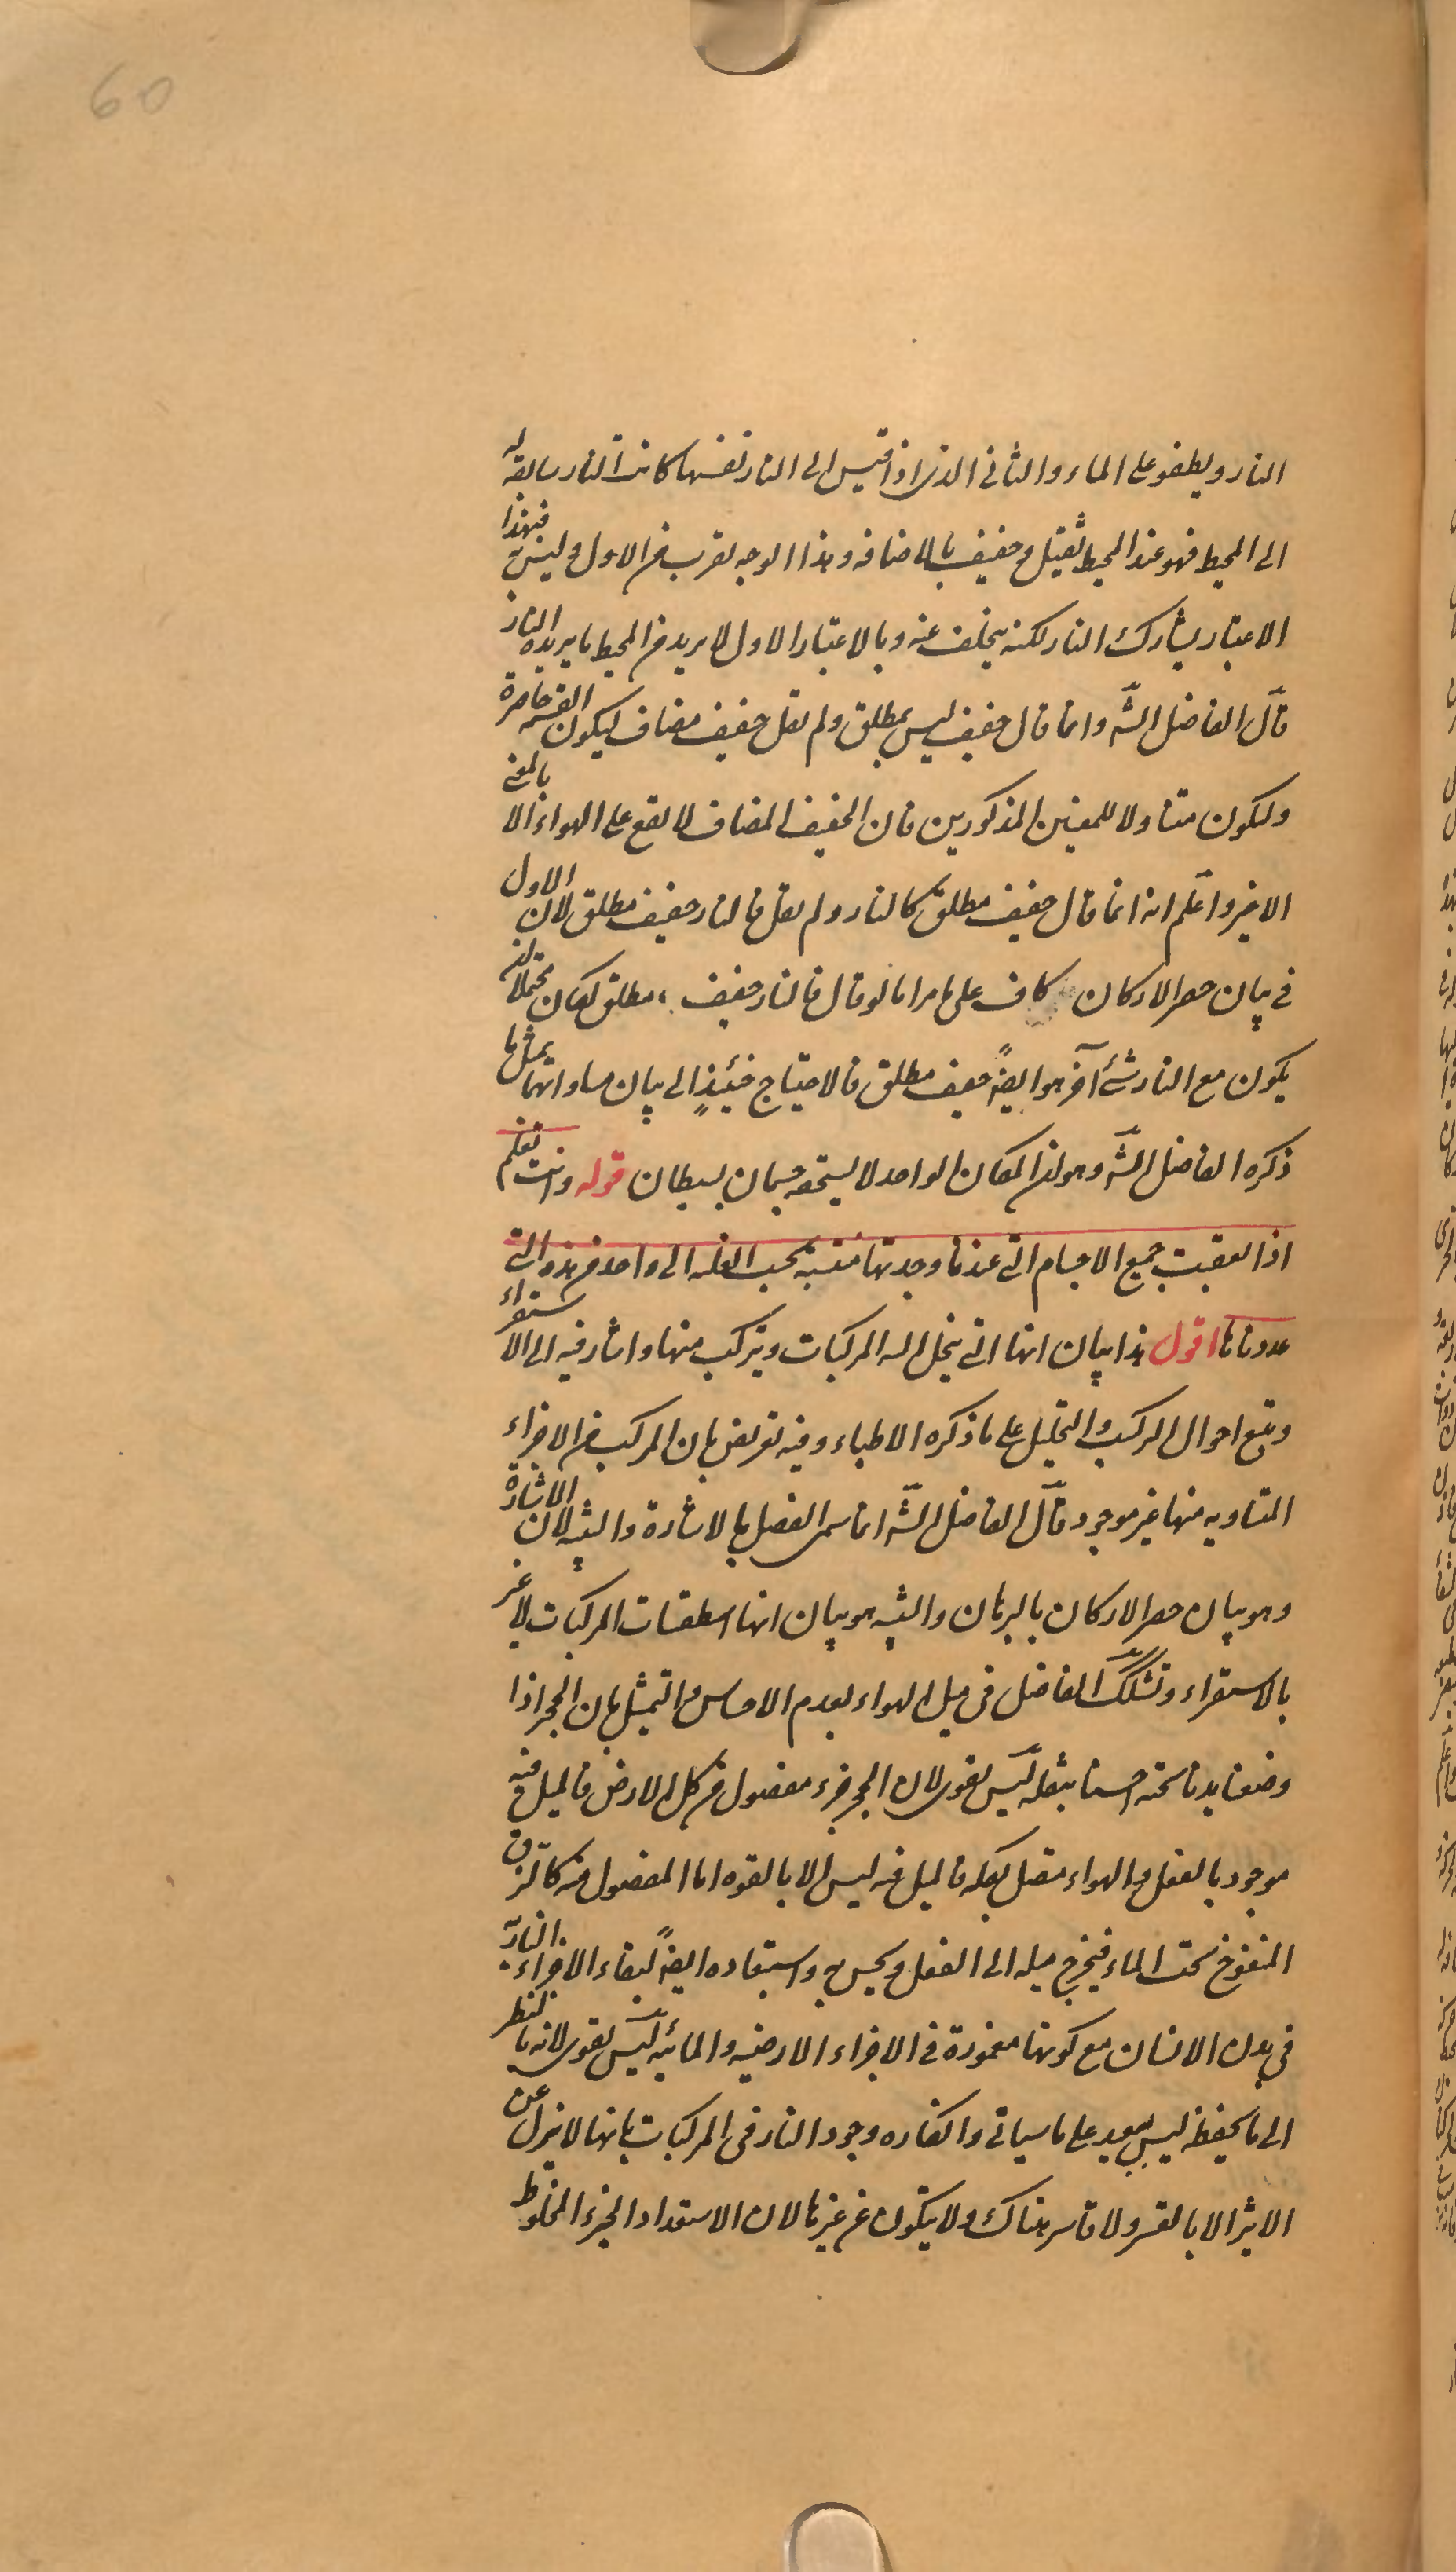 60
النار ويطفو على الماء والثاني الذي اذا قيس الى النار نفسها كانت النار سابقة له
الى المحيط فهو عند المحيط ثقيل وخفيف بالاضافه وهذا الوجه يقرب من الاول وليس به فبهذا
الاعتبار يشارك النار لكنه يتخلف عنه وبالاعتبار الاول لا يريد من المحيط ما يريده النار
قال الفاضل الشّه وانما قال خفيف ليس بمطلق ولم يقل خفيف مضاف ليكون القسمة حاصرة
وليكون متناولا للمعنيين المذكورين فان الخفيف المضاف لا يقع على الهواء الا بالمعنى
الاخير واعلم انه انما قال خفيف مطلق كالنار ولم يقل فالنار خفيف مطلق لان الاول
في بيان حصر الاركان كاف على ما مر اما لو قال فالنار خفيف مطلق لكان محتملا لان
يكون مع النار شئ آخر هو ايضاً خفيف مطلق فالاحتياج حينئذٍ الى بيان مساواتهما بمثل ما
ذكره الفاضل الشّه وهو ان المكان الواحد لا يستحقه جسمان بسيطان قوله وانت تعلم
اذا تعقبت جميع الاجسام التي عندنا وجدتها منتسبة بحسب الغلبه الى واحد من هذه التي
عددناها اقول هذا بيان انها التي ينحل اليه المركبات ويتركب منها واشار فيه الى الاستقراء
وتتبع احوال التركيب والتحليل على ما ذكره الاطباء وفيه تعريض بان المركب من الاجزاء
المتساويه منها غير موجود قال الفاضل الشّه انما سمى الفصل بالاشارة والتنبيه لان الاشارة
وهو بيان حصر الاركان بالبرهان والتنبيه هو بيان انها اسطقسات المركبات لا غير
بالاستقراء وتشكك الفاضل في ميل الهواء بعدم الاحساس والتمثيل بان الحجر اذا
وضعنا يدنا تحته احسسنا بثقله ليس بقوى لان الحجر جزء مفصول من كل الارض فالميل فيه
موجود بالفعل والهواء متصل بكله فالميل فيه ليس الا بالقوه اما المفصول منه كالزق
المنفوخ تحت الماء فيخرج ميله الى الفعل ويحس به واستبعاده ايضاً لبقاء الاجزاء الناريّة
في بدن الانسان مع كونها مغمورة في الاجزاء الارضيه والمائيه ليس بقوى لانه بالنظر
الى ما يحفظه ليس ببعيد على ما سياتي وانكاره وجود النار في المركبات بانها لا ينزل عن
الاثير الا بالقسر ولا قاسر هناك ولا يتكون من غيرها لان الاستعداد الجزء المخلوط